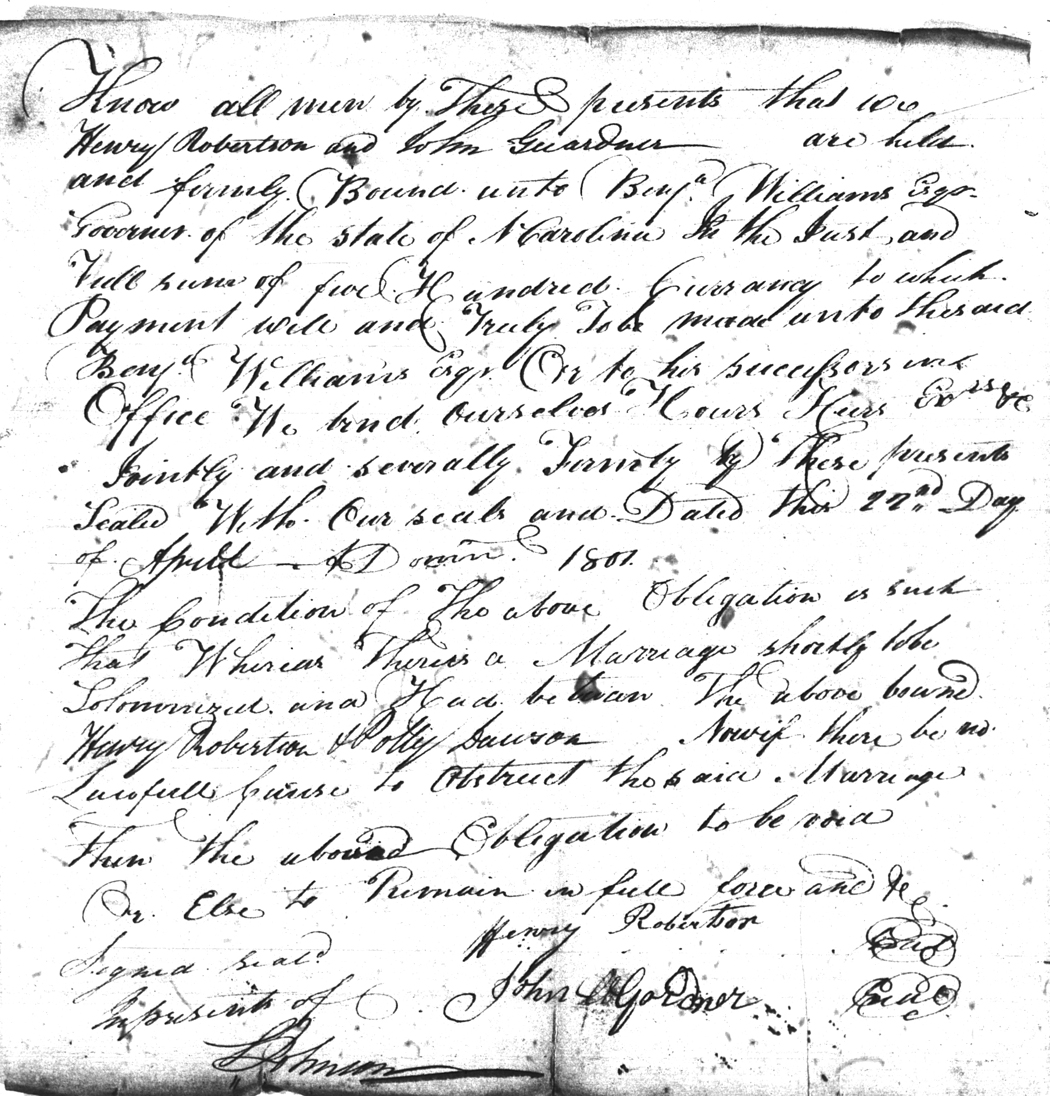 Know all men by These presents that we
Henry Robertson and John Guardner are held
and firmly Bound unto Benja Williams Esqr
Governer of the state of N Carolina In the Just and
Full sum of five Hundred Currancy to which
Payment well and Truly Tobe made unto thesaid
Benja Williams Esqr Or to his successors in
Office We bind Ourselves Hours Heirs Exrs &c
Jointly and severally Firmly by These presents
Sealed With Our seals and Dated this 22nd Day
of Aprill A Domn 1801
The Condition of The above Obligation is such
that Whereas Thereis a Marriage shortly tobe
Solomnized and Had betwan The above bound
Henry Robertson & Polly Dawson Nowif there be no
Lawfull Cause to Obstruct the said Marriage
Then the above Obligation to be void
Or Else to Remain in full force and &c
Signed seald Henry Robertson Seal
In presents of John Gardner Seal
Johnson